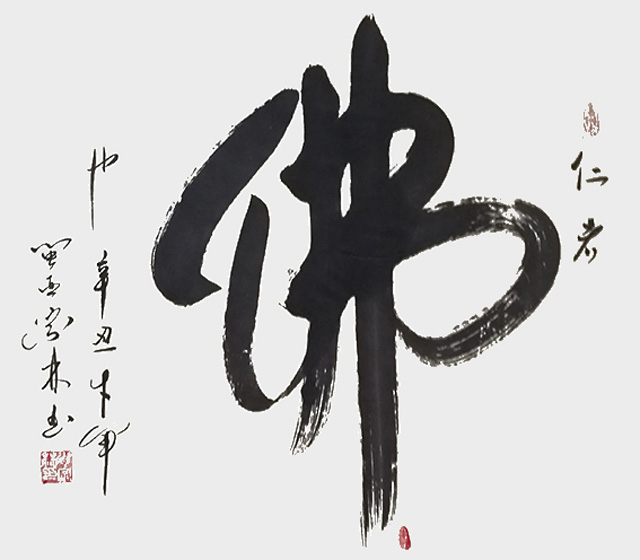 仁者
佛
也 辛丑牛年
林书